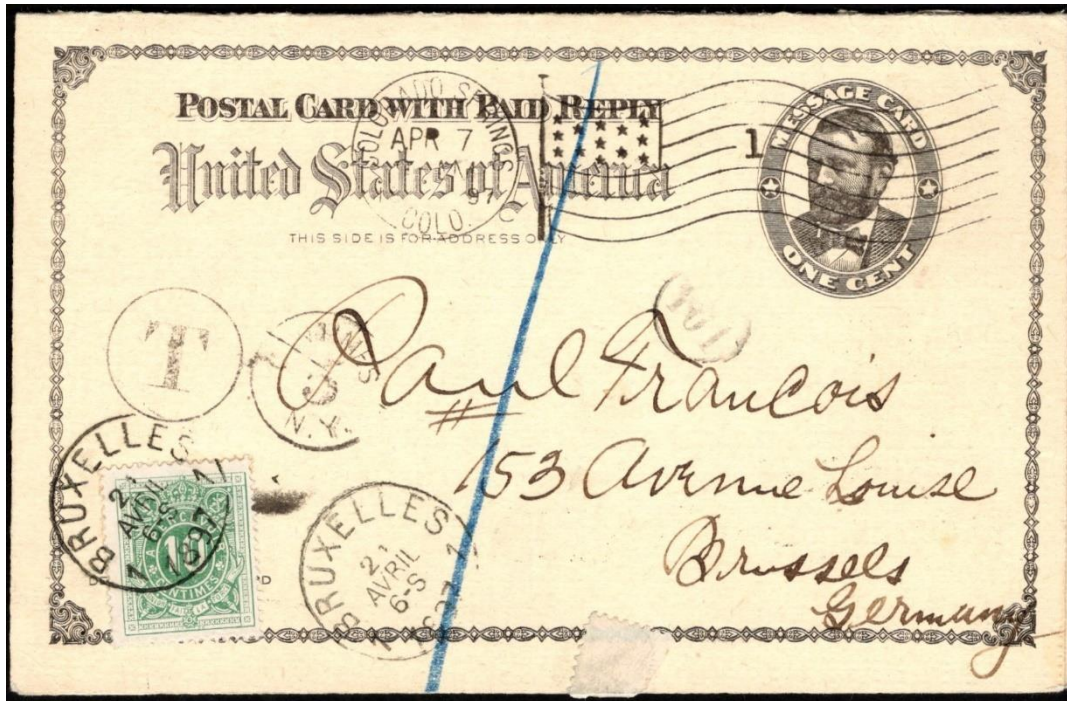 POSTAL CARD WITH PAID REPLY
United States of America
THIS SIDE IS FOR ADDRESS ONLY
COLORADO SPRINGS
APR 7
97
COLO.
1
MESSAGE CARD
ONE CENT
T
N.Y.
Paul Francois
153 Avenue Louise
Brussels
Germany
BRUXELLES
21
AVRIL
6-S
1897
10
CENTIMES
BRUXELLES
21
AVRIL
6-S
1897